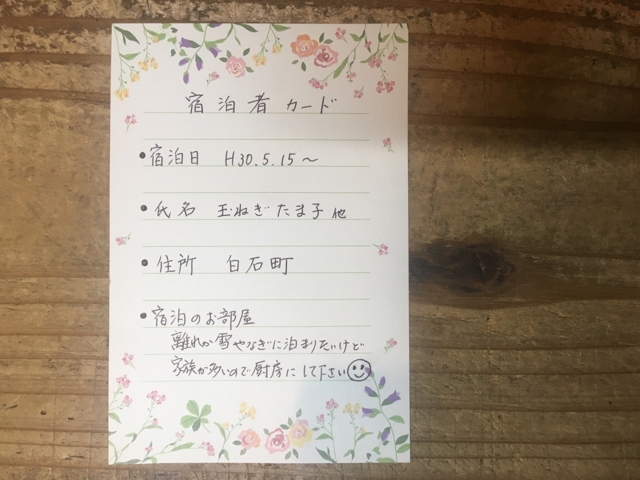 宿泊者カード
●宿泊日 H30.5.15〜
●氏名 玉ねぎたま子他
●住所 白石町
●宿泊のお部屋
離れか雪やなぎに泊まりたいけど
家族が多いので厨房にして下さい